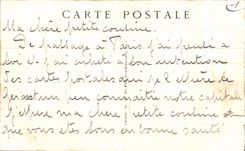 CARTE POSTALE
Ma chère petite cousine.
De passage à Paris j'ai pensé à
toi et j'ai acheté à ton intention
des carte postales qui je l'espère te
feront un peu connaître notre capitale
J'espère ma chère petite cousine
que vous êtes tous en bonne santé